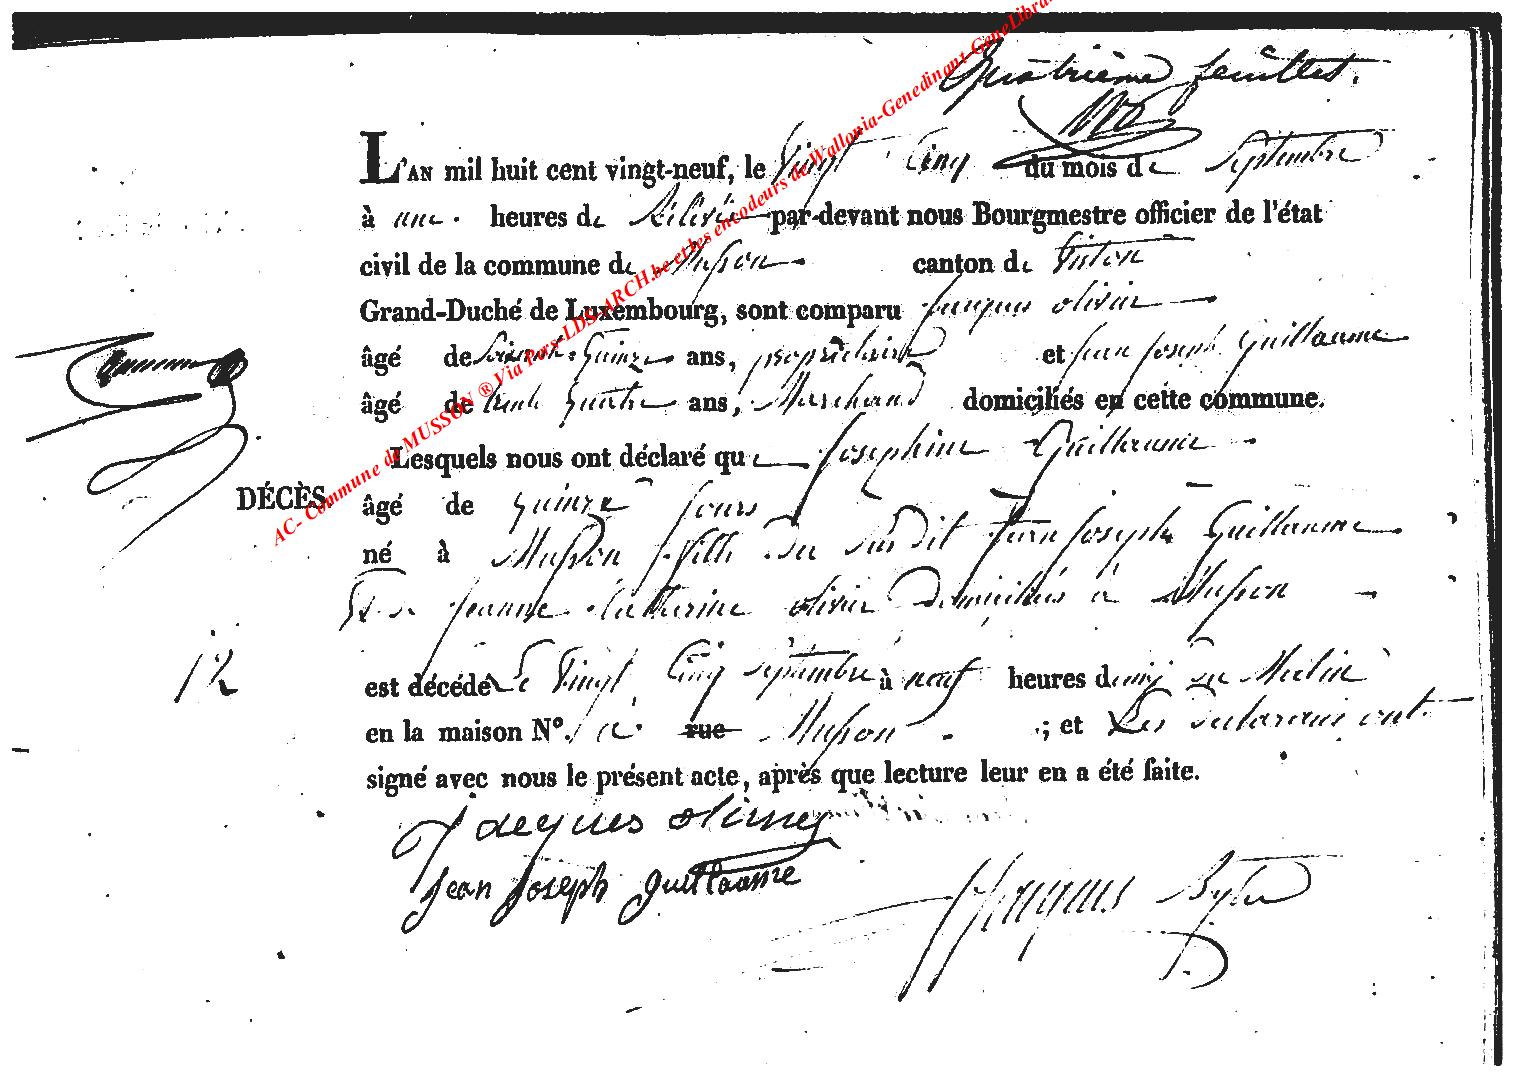 Quatrième feuillet.
L'AN mil huit cent vingt-neuf, le Vingt Cinq du mois de Septembre
à une heures de Relevée par-devant nous Bourgmestre officier de l'état
civil de la commune de Musson canton de Virton
Grand-Duché de Luxembourg, sont comparu Jacques olivier
âgé de Soixante Quinze ans, propriétaire et Jean Joseph Guillaume
âgé de trente Quatre ans, Marchand domiciliés en cette commune.
Lesquels nous ont déclaré que Josephine Guillaume
DÉCÈS
âgé de quinze jours
né à Musson fille du susdit Jean Joseph Guillaume
Et de Jeanne Catherine olivier domiciliés à Musson
12
est décédé Le Vingt Cinq Septembre à neuf heures du Matin
en la maison N°. à rue Musson ; et Les déclarans ont
signé avec nous le présent acte, après que lecture leur en a été faite.
Jacques olivier
Jean Joseph guillaume
Jacques
AC- Commune de MUSSON ® Via Pars-LDS-ARCH.be et les encodeurs de Wallonia-Genedinant-GeneLibra